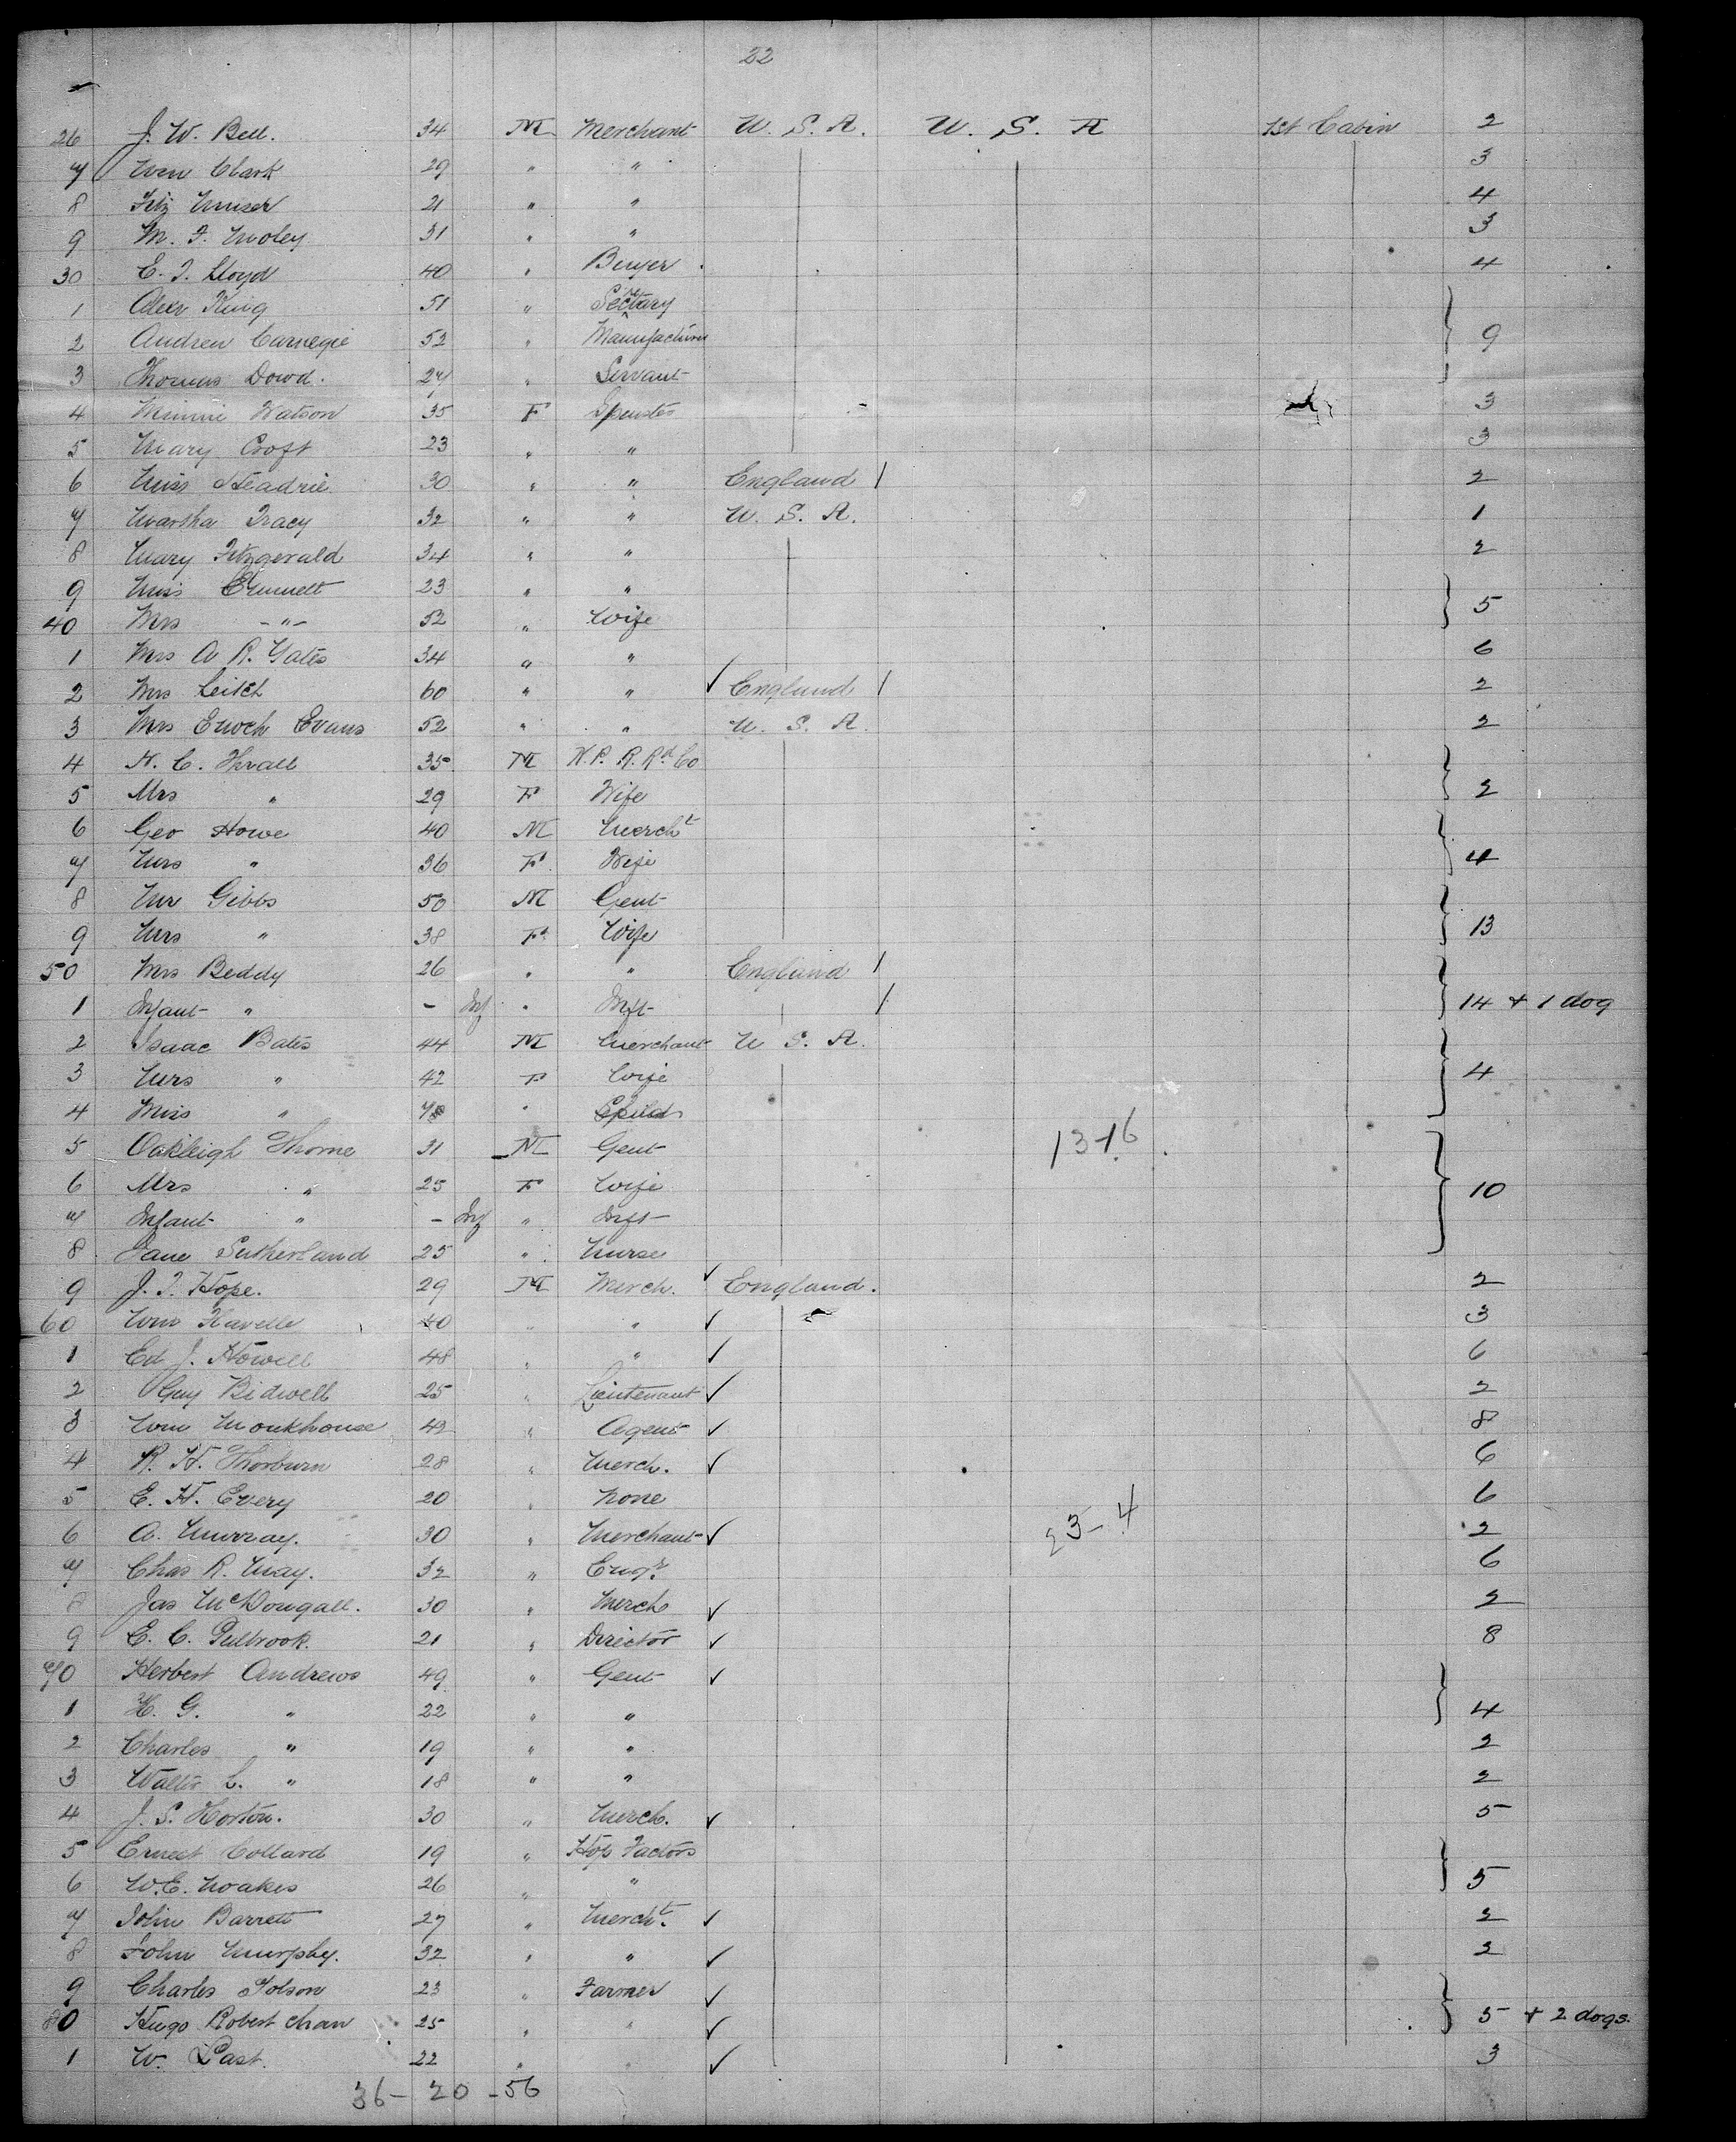 22
26 J. W. Bell. 34 M Merchant U. S. A. U. S. A 1st Cabin 2
7 Wm Clark 29 " " 3
8 21 " " 4
9 M. F. 31 " " 3
30 E. J. Lloyd 40 " Buyer 4
1 Alexr King 51 " Secretary
2 Andrew Carnegie 52 " Manufacturer 9
3 Thomas Dowd. 27 " Servant
4 Minnie Watson 35 F Spinster 3
5 Mary Croft 23 " " 3
6 Miss Headrie 30 " " England / 2
7 Martha Tracy 32 " " U. S. A. 1
8 Mary Fitzgerald 34 " " 2
9 Miss Emmett 23 " "
40 Mrs -"- 52 " Wife 5
1 Mrs A R. Yates 34 " " 6
2 Mrs Leitch 60 " " ✓ England / 2
3 Mrs Enoch Evans 52 " " U. S. A. 2
4 H. C. Thrall 35 M N. P. R. Rd Co
5 Mrs " 29 F Wife 2
6 Geo Howe 40 M Mercht
7 Mrs " 36 F Wife 4
8 Mr Gibbs 50 M Gent
9 Mrs " 38 F Wife 13
50 Mrs Beddy 26 " " England /
1 Infant " - Inf " Inft / 14 + 1 dog
2 Isaac Bates 44 M Merchant U S. A.
3 Mrs " 42 F Wife 4
4 Miss " " Child
5 Oakleigh Thorne 31 M Gent 13-16
6 Mrs " 25 F Wife 10
7 Infant " - Inf " Inft
8 Jane Sutherland 25 " Nurse
9 J. T. Hope. 29 M Merch. ✓ England. 2
60 Wm Havelle 40 " " ✓ 3
1 Ed J. Howell 48 " " ✓ 6
2 Guy Bidwell 25 " Lieutenant ✓ 2
3 Wm Monkhouse 42 " Agent ✓ 8
4 R. H. Thorburn 28 " Merch. ✓ 6
5 E. H. Every 20 " None 6
6 A. Murray. 30 " Merchant ✓ 23-4 2
7 Chas R. May. 32 " Engr. 6
8 Jas McDougall. 30 " Merch ✓ 2
9 E. C. Pulbrook. 21 " Director ✓ 8
70 Herbert Andrews 49 " Gent ✓
1 H. G. " 22 " " 4
2 Charles " 19 " " 2
3 Walter L. " 18 " " 2
4 J. S. Horton. 30 " Merch. ✓ 5
5 Ernest Collard 19 " Hop Factors
6 W. E. Noakes 26 " " 5
7 John Barrett 27 " Mercht. ✓ 2
8 John Murphy. 32 " " ✓ 2
9 Charles Tolson 23 " Farmer ✓
80 Hugo Robert chan 25 " " ✓ 5 + 2 dogs.
1 W. Last. 22 " " ✓ 3
36- 20 -56